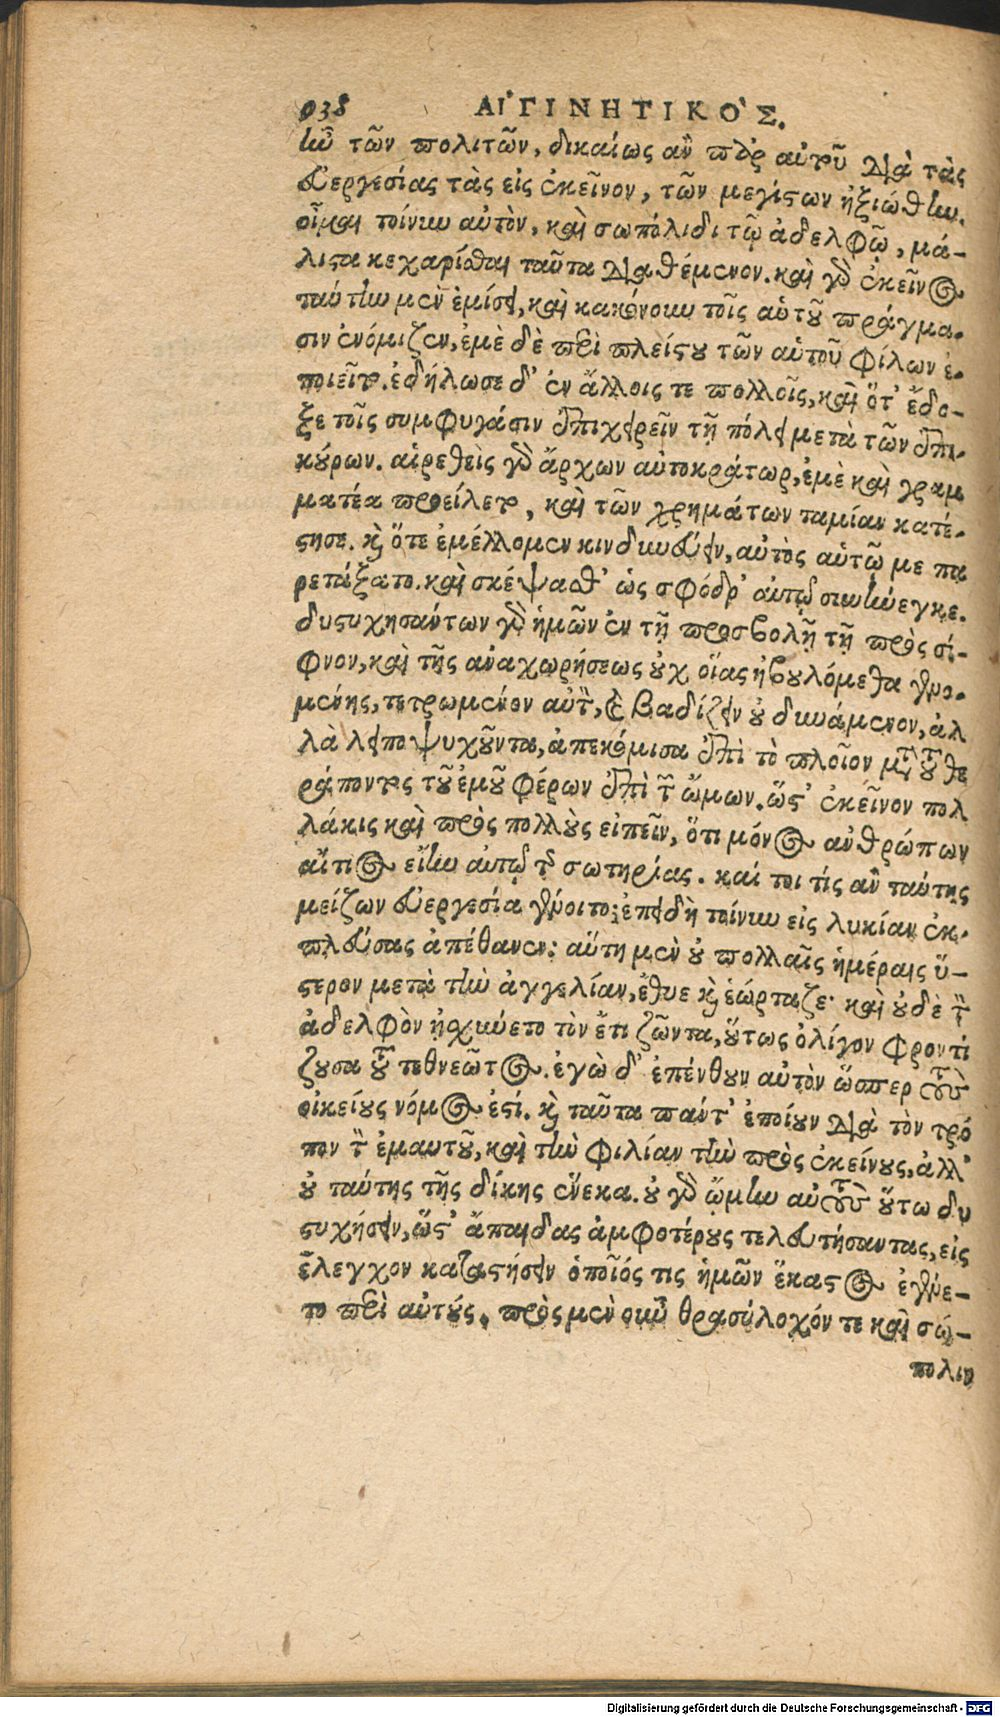 938 ΑἸΓΙΝΗΤΙΚΟΣ.
ἦν τῶν πολιτῶν, δικαίως ἂν παρ' αὐτοῦ διὰ τὰς
εὐεργεσίας τὰς εἰς ἐκεῖνον, τῶν μεγίστων ἠξιώθην.
οἶμαι τοίνυν αὐτὸν, καὶ σωπόλιδι τῷ ἀδελφῷ, μά-
λιστα κεχαρίσθαι ταῦτα διαθέμενον. καὶ γὰρ ἐκεῖνος
ταύτην μὲν ἐμίσει, καὶ κακόνουν τοῖς αὑτοῦ πράγμα-
σιν ἐνόμιζεν, ἐμὲ δὲ περὶ πλείστου τῶν αὑτοῦ φίλων ἐ-
ποιεῖτο. ἐδήλωσε δ' ἐν ἄλλοις τε πολλοῖς, καὶ ὅτ' ἔδο-
ξε τοῖς συμφυγάσιν ἐπιχειρεῖν τῇ πόλει μετὰ τῶν ἐπι-
κούρων. αἱρεθεὶς γὰρ ἄρχων αὐτοκράτωρ, ἐμὲ καὶ γραμ
ματέα προείλετο, καὶ τῶν χρημάτων ταμίαν κατέ-
στησε. καὶ ὅτε ἐμέλλομεν κινδυνεύειν, αὐτὸς αὑτῷ με πα
ρετάξατο. καὶ σκέψασθ' ὡς σφόδρ' αὐτῷ συνήνεγκε.
δυστυχησάντων γὰρ ἡμῶν ἐν τῇ προσβολῇ τῇ πρὸς σί-
φνον, καὶ τῆς ἀναχωρήσεως οὐχ οἵας ἠβουλόμεθα γενο-
μένης, τετρωμένον αὐτὸν, καὶ βαδίζειν οὐ δυνάμενον, ἀλ
λὰ λειποψυχοῦντα, ἀπεκόμισα ἐπὶ τὸ πλοῖον μετὰ τοῦ θε
ράποντος τοῦ ἐμοῦ φέρων ἐπὶ τῶν ὤμων. ὥστ' ἐκεῖνον πολ
λάκις καὶ πρὸς πολλοὺς εἰπεῖν, ὅτι μόνος ἀνθρώπων
αἴτιος εἴην αὐτῷ τῆς σωτηρίας. καί τοι τίς ἂν ταύτης
μείζων εὐεργεσία γένοιτο; ἐπειδὴ τοίνυν εἰς λυκίαν ἐκ-
πλεύσας ἀπέθανεν: αὕτη μὲν οὐ πολλαῖς ἡμέραις ὕ-
στερον μετὰ τὴν ἀγγελίαν, ἔθυε καὶ ἑώρταζε· καὶ οὐδὲ τὸν
ἀδελφὸν ᾐσχύνετο τὸν ἔτι ζῶντα, οὕτως ὀλίγον φροντί
ζουσα τοῦ τεθνεῶτος. ἐγὼ δ' ἐπένθουν αὐτὸν ὥσπερ τοὺς
οἰκείους νόμος ἐστί. καὶ ταῦτα πάντ' ἐποίουν διὰ τὸν τρό
πον τὸν ἐμαυτοῦ, καὶ τὴν φιλίαν τὴν πρὸς ἐκείνους, ἀλλ'
οὐ ταύτης τῆς δίκης ἕνεκα. οὐ γὰρ ᾤμην αὐτοὺς οὕτω δυ
στυχήσειν, ὥστ' ἄπαιδας ἀμφοτέρους τελευτήσαντας, εἰς
ἔλεγχον καταστήσειν ὁποῖός τις ἡμῶν ἕκαστος ἐγένε-
το περὶ αὐτούς. πρὸς μὲν οὖν θρασύλοχόν τε καὶ σώ-
πολιν
Digitalisierung gefördert durch die Deutsche Forschungsgemeinschaft - DFG